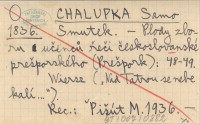 CHALUPKA Samo
1836. Smutek. - Plody zbo-
ru učenců řeči českoslovanské
prešporského (Prešpork): 48-49.
Wiersz (,,Nad Tatrou se nebe
kalí...")
Rec.: Pišút M. 1936. -